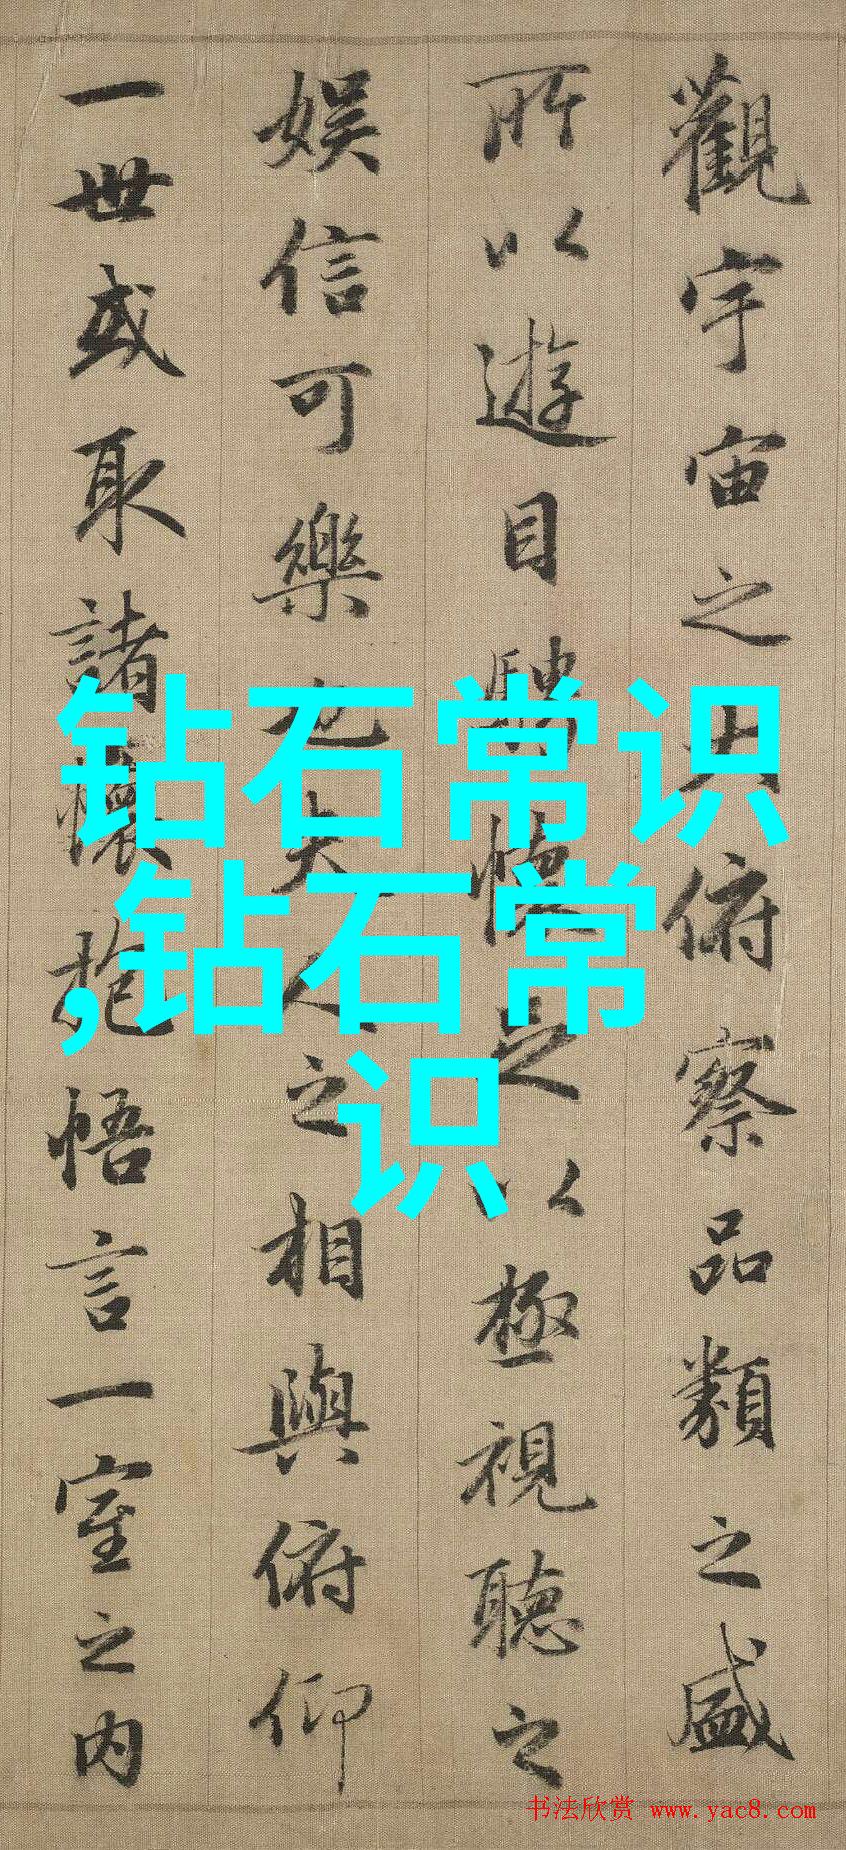 觀宇宙之大俯察品類之盛
所以遊目騁懷足以極視聽之
娱信可樂也夫人之相與俯仰
一世或取諸懷抱悟言一室之内
钻石常识
,钻石常
识
书法欣赏 www.yac8.com